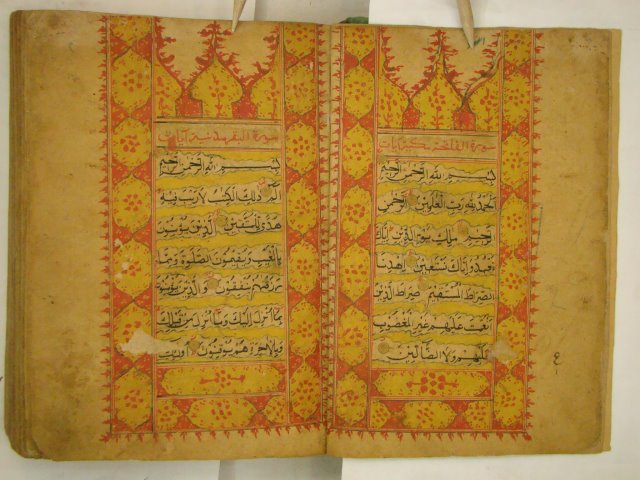 سورة الفاتحة مكية ايات
بسم الله الرحمن الرحيم
الحمد لله رب العلمين الرحمن
الرحيم ملك يوم الدين اياك
نعبد واياك نستعين اهدنا
الصراط المستقيم صراط الذين
انعمت عليهم غير المغضوب
عليهم ولا الضالين
ع
سورة البقر مدنية ايات
بسم الله الرحمن الرحيم
الم ذلك الكتب لا ريب فيه
هدى للمتقين الذين يؤمنون
بالغيب ويقيمون الصلوة ومما
رزقنهم ينفقون والذين يؤمنون
بما انزل اليك وما انزل من قبلك
وبالاخرة هم يوقنون اولئك